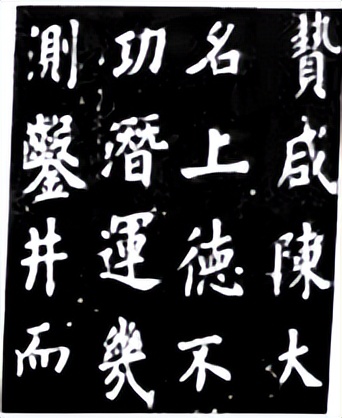 贄咸陳大
名上德不
功潛運幾
測鑿井而